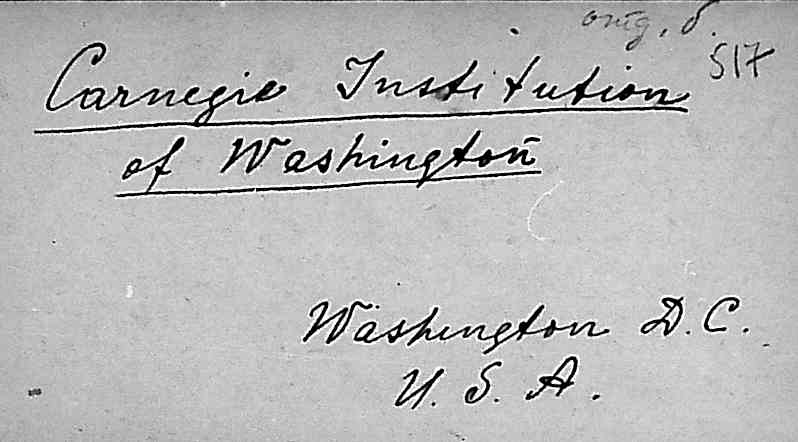 517
Carnegie Institution
of Washington
Washington D.C.
U. S. A.